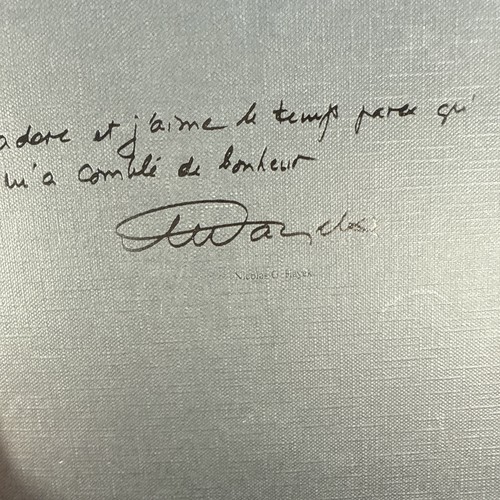 adore et j'aime le temps parce qu'
m'a comblé de bonheur
Nicolas G. Hayek